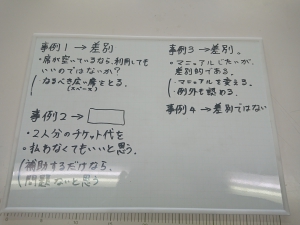 事例1→差別
・席が空いているなら、利用しても
いいのではないか？
なるべく広い席をとる。
(スペース)
事例2→
・2人分のチケット代を
・払わなくてもいいと思う。
補助するだけなら、
問題ないと思う
事例3→差別。
・マニュアルでしたいが、
差別的である。
・マニュアルを変える。
・例外を認める。
事例4→差別ではない